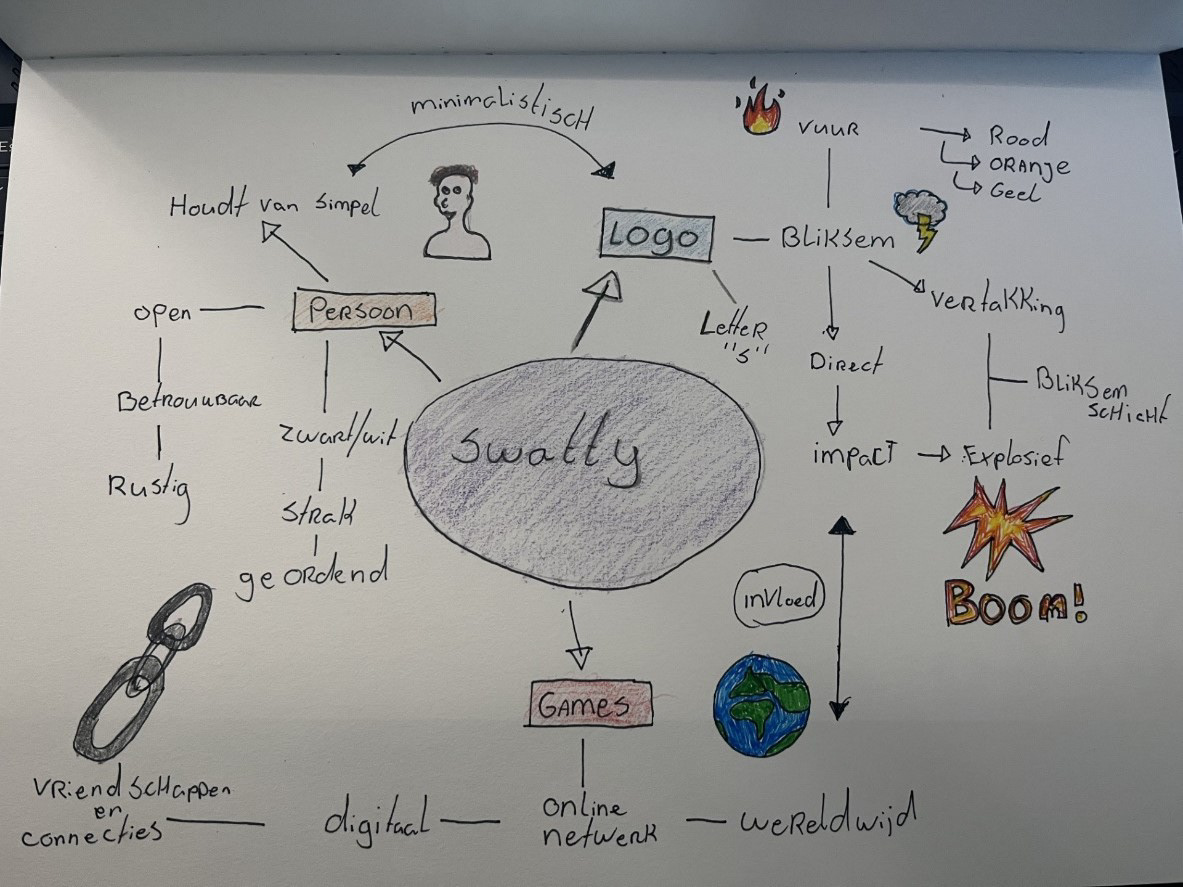 minimalistisch
Houdt van simpel
Persoon
open
Betrouwbaar
Rustig
zwart/wit
strak
geordend
Logo
Letter
"s"
Bliksem
vuur
Rood
oranje
Geel
vertakking
Bliksem
schicht
Direct
impact
Explosief
Boom!
swatty
invloed
Games
online
netwerk
wereldwijd
digitaal
vriendschappen
en
connecties